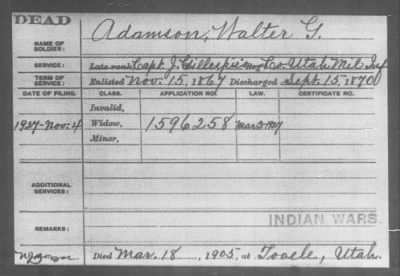 DEAD
NAME OF SOLDIER: Adamson, Walter G.
SERVICE: Late rank Capt. J. Gillespie's Co. Utah Mil. Inf
TERM OF SERVICE: Enlisted Nov. 15, 1867 Discharged Sept. 15, 1870
DATE OF FILING. CLASS. APPLICATION NO. LAW. CERTIFICATE NO.
Invalid,
1927-Nov. 4 Widow, 1596258 Mar 3-1927
Minor,
ADDITIONAL SERVICES:
INDIAN WARS.
REMARKS:
Died Mar. 18, 1905, at Tooele, Utah.